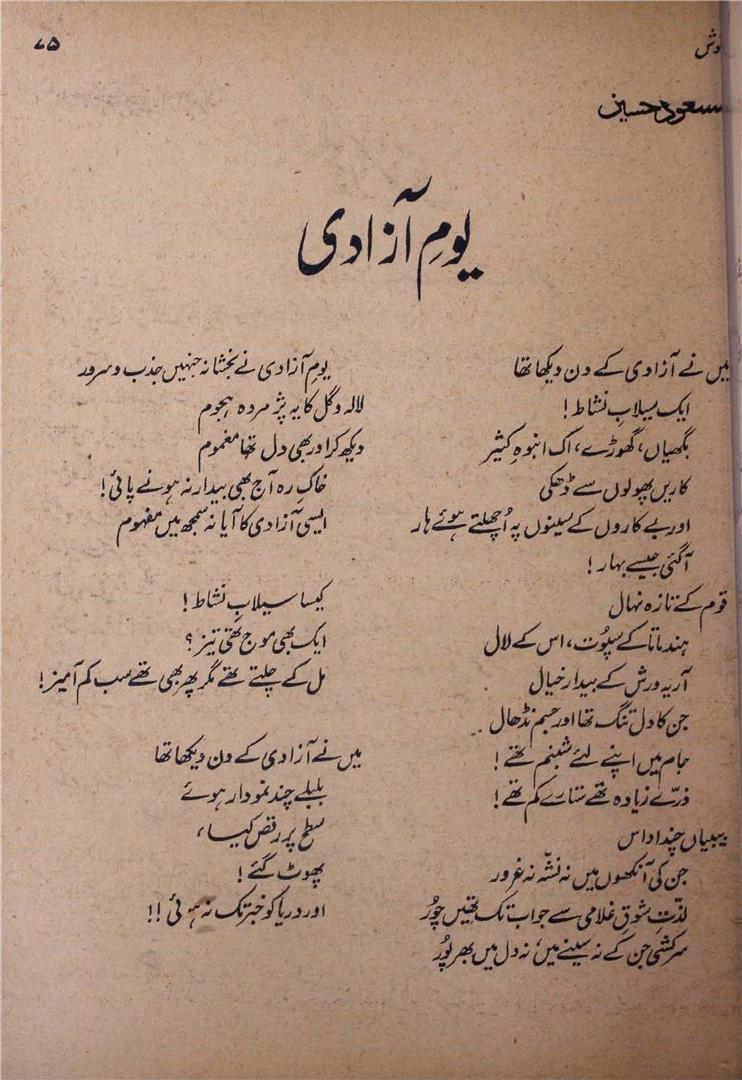 ۷۵
مسعود حسین
یومِ آزادی
میں نے آزادی کے دن دیکھا تھا
ایک سیلابِ نشاط!
بگھیاں، گھوڑے، اک انبوہِ کثیر
کاریں پھولوں سے ڈھکی
اور بے کاروں کے سینوں پہ اُچھلتے ہوئے ہار
آگئی جیسے بہار!
قوم کے تازہ نہال
ہند ماتا کے سپُوت، اس کے لال
آریہ ورش کے بیدار خیال
جن کا دل تنگ تھا اور جسم نڈھال
جام میں اپنے لئے شبنم تھے!
ذرّے زیادہ تھے ستارے کم تھے!
بیبیاں چند اداس
جن کی آنکھوں میں نہ نشّہ نہ غرور
لذّتِ شوقِ غلامی سے جواب تک تھیں چُور
سرکشی جن کے نہ سینے میں، نہ دل میں بھرپُور
یومِ آزادی نے بخشا نہ جنہیں جذب و سرور
لالہ و گل کا یہ پژمردہ ہجوم
دیکھ کر اور بھی دل تھا مغموم
خاکِ رہ آج بھی بیدار نہ ہونے پائی!
ایسی آزادی کا آیا نہ سمجھ میں مفہوم
کیسا سیلابِ نشاط!
ایک بھی موج تھی تیز؟
مل کے چلتے تھے مگر پھر بھی تھے سب کم آمیز!
میں نے آزادی کے دن دیکھا تھا
بلبلے چند نمودار ہوئے
سطح پر رقص کیا،
پھوٹ گئے!
اور دریا کو خبر تک نہ ہوئی!!